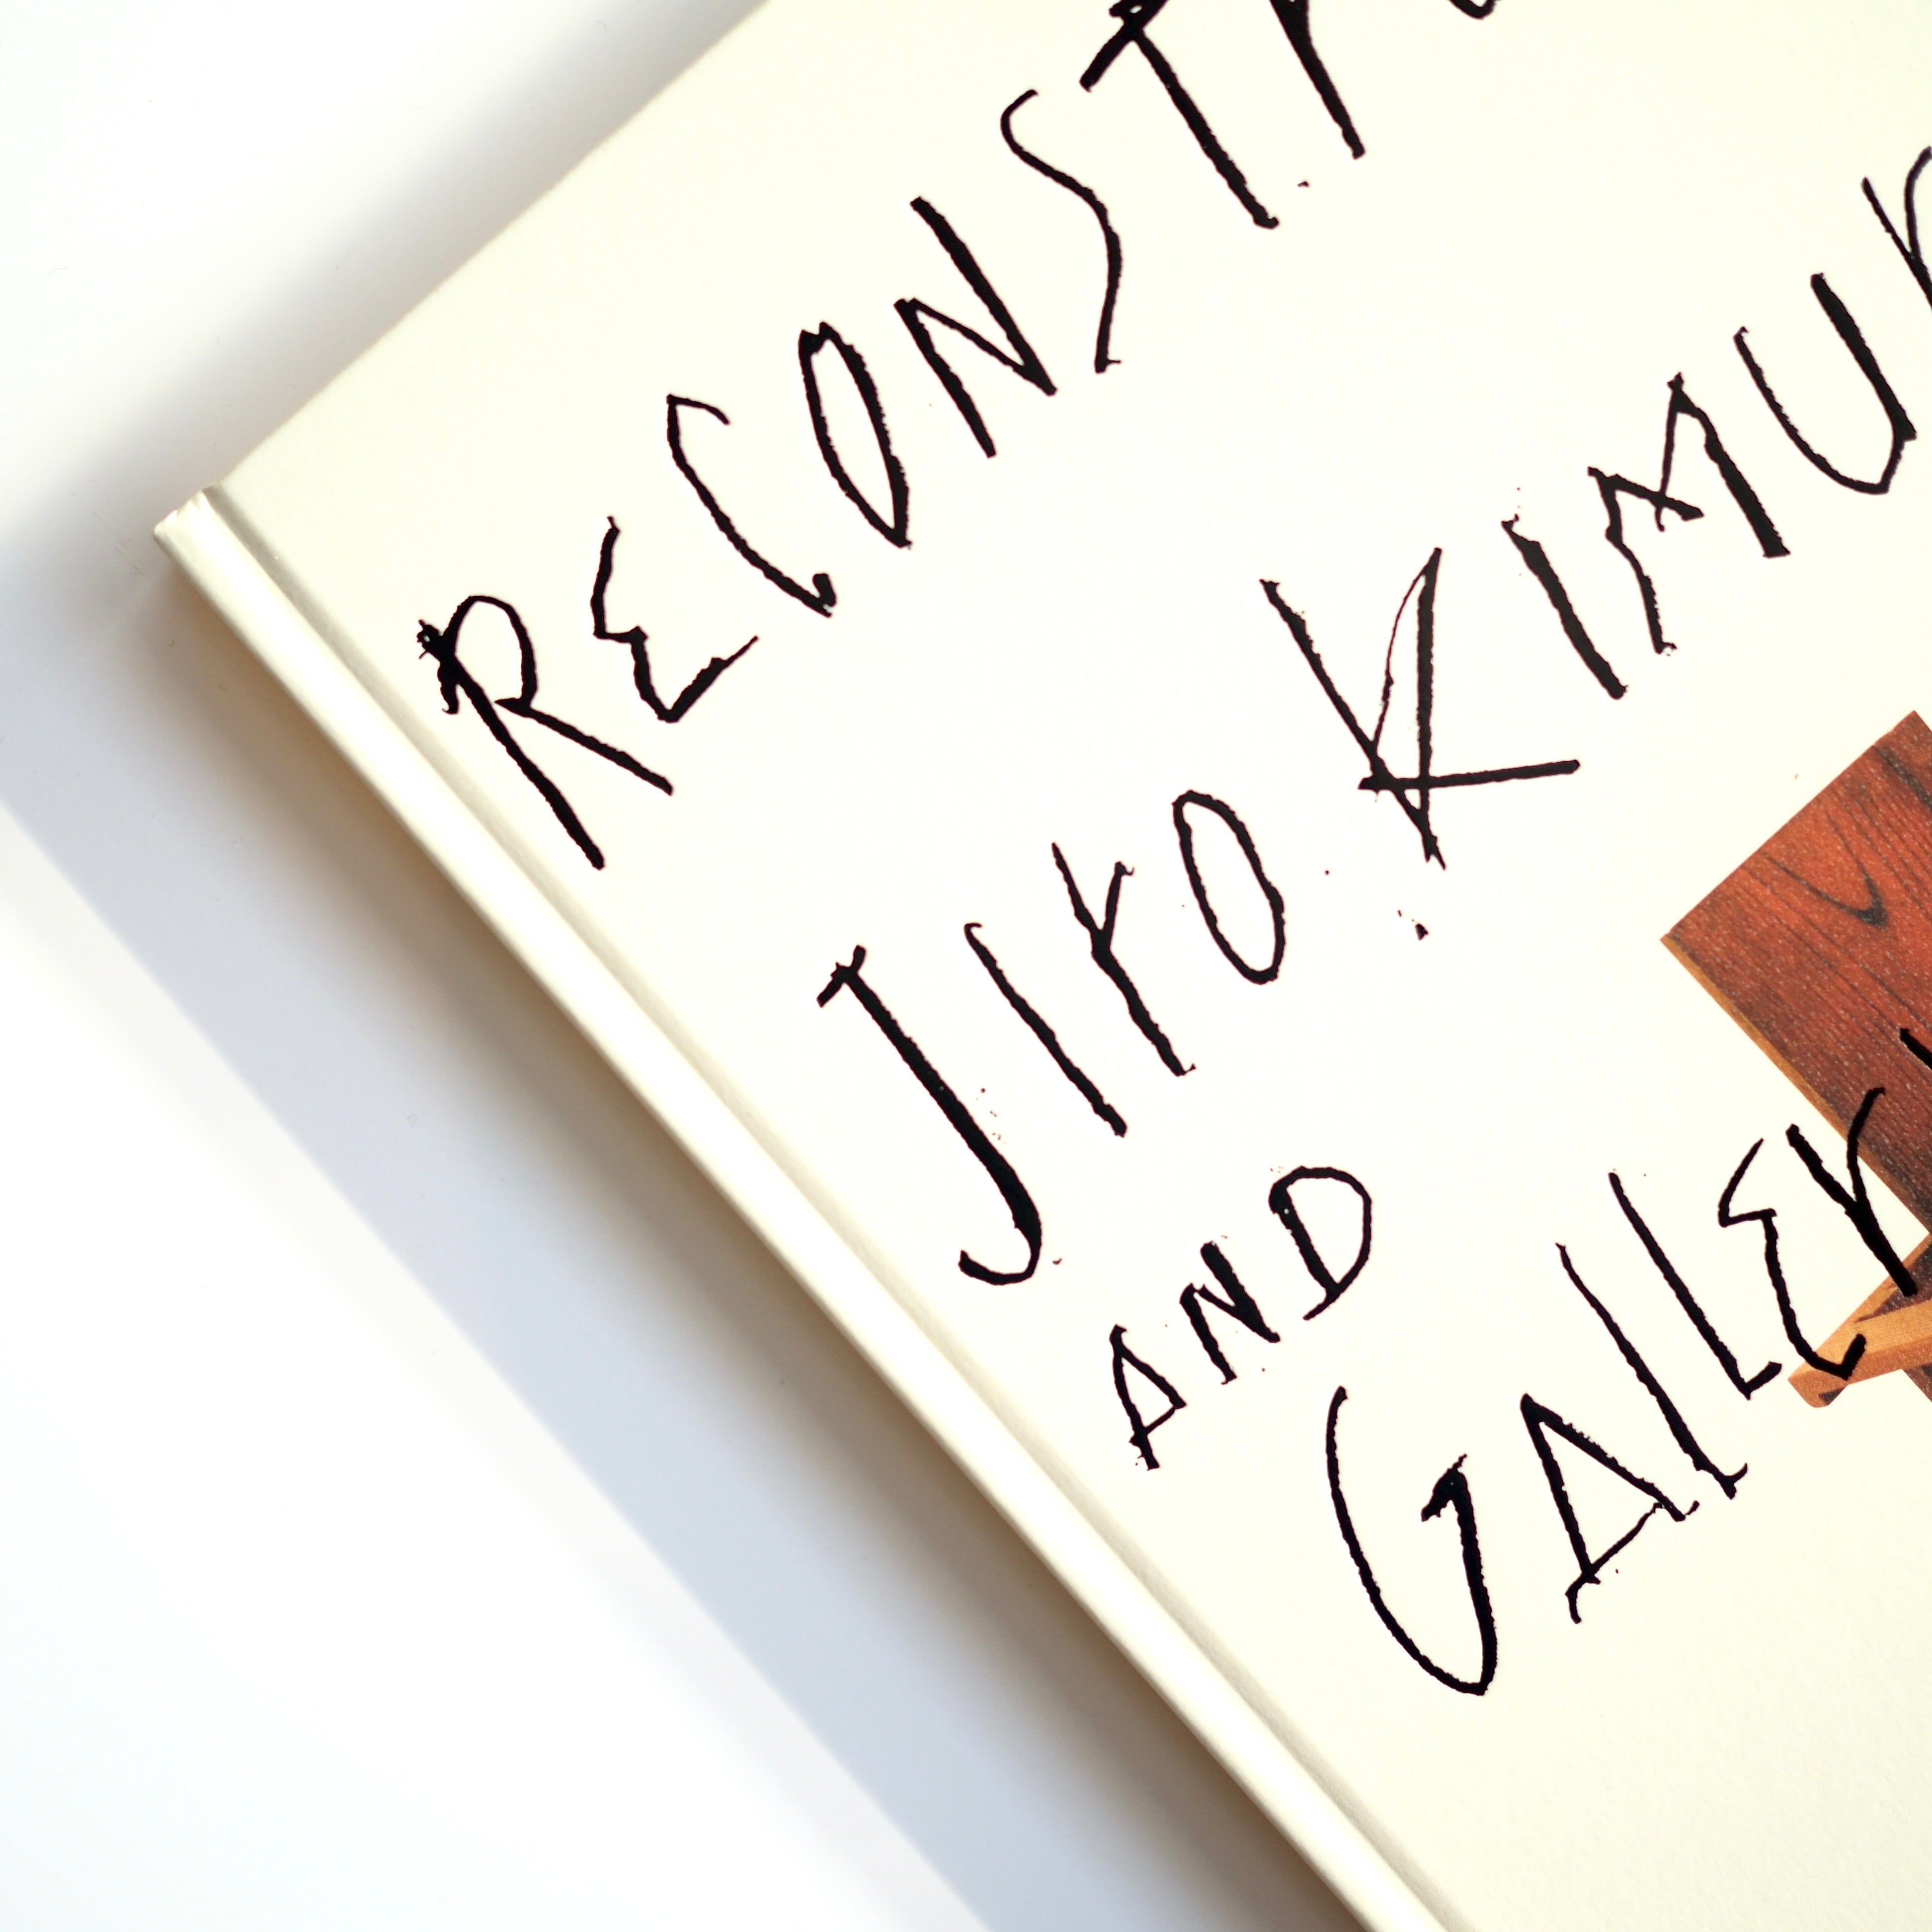 RECONSTR
JIrO KIMUR
AND
GALLER